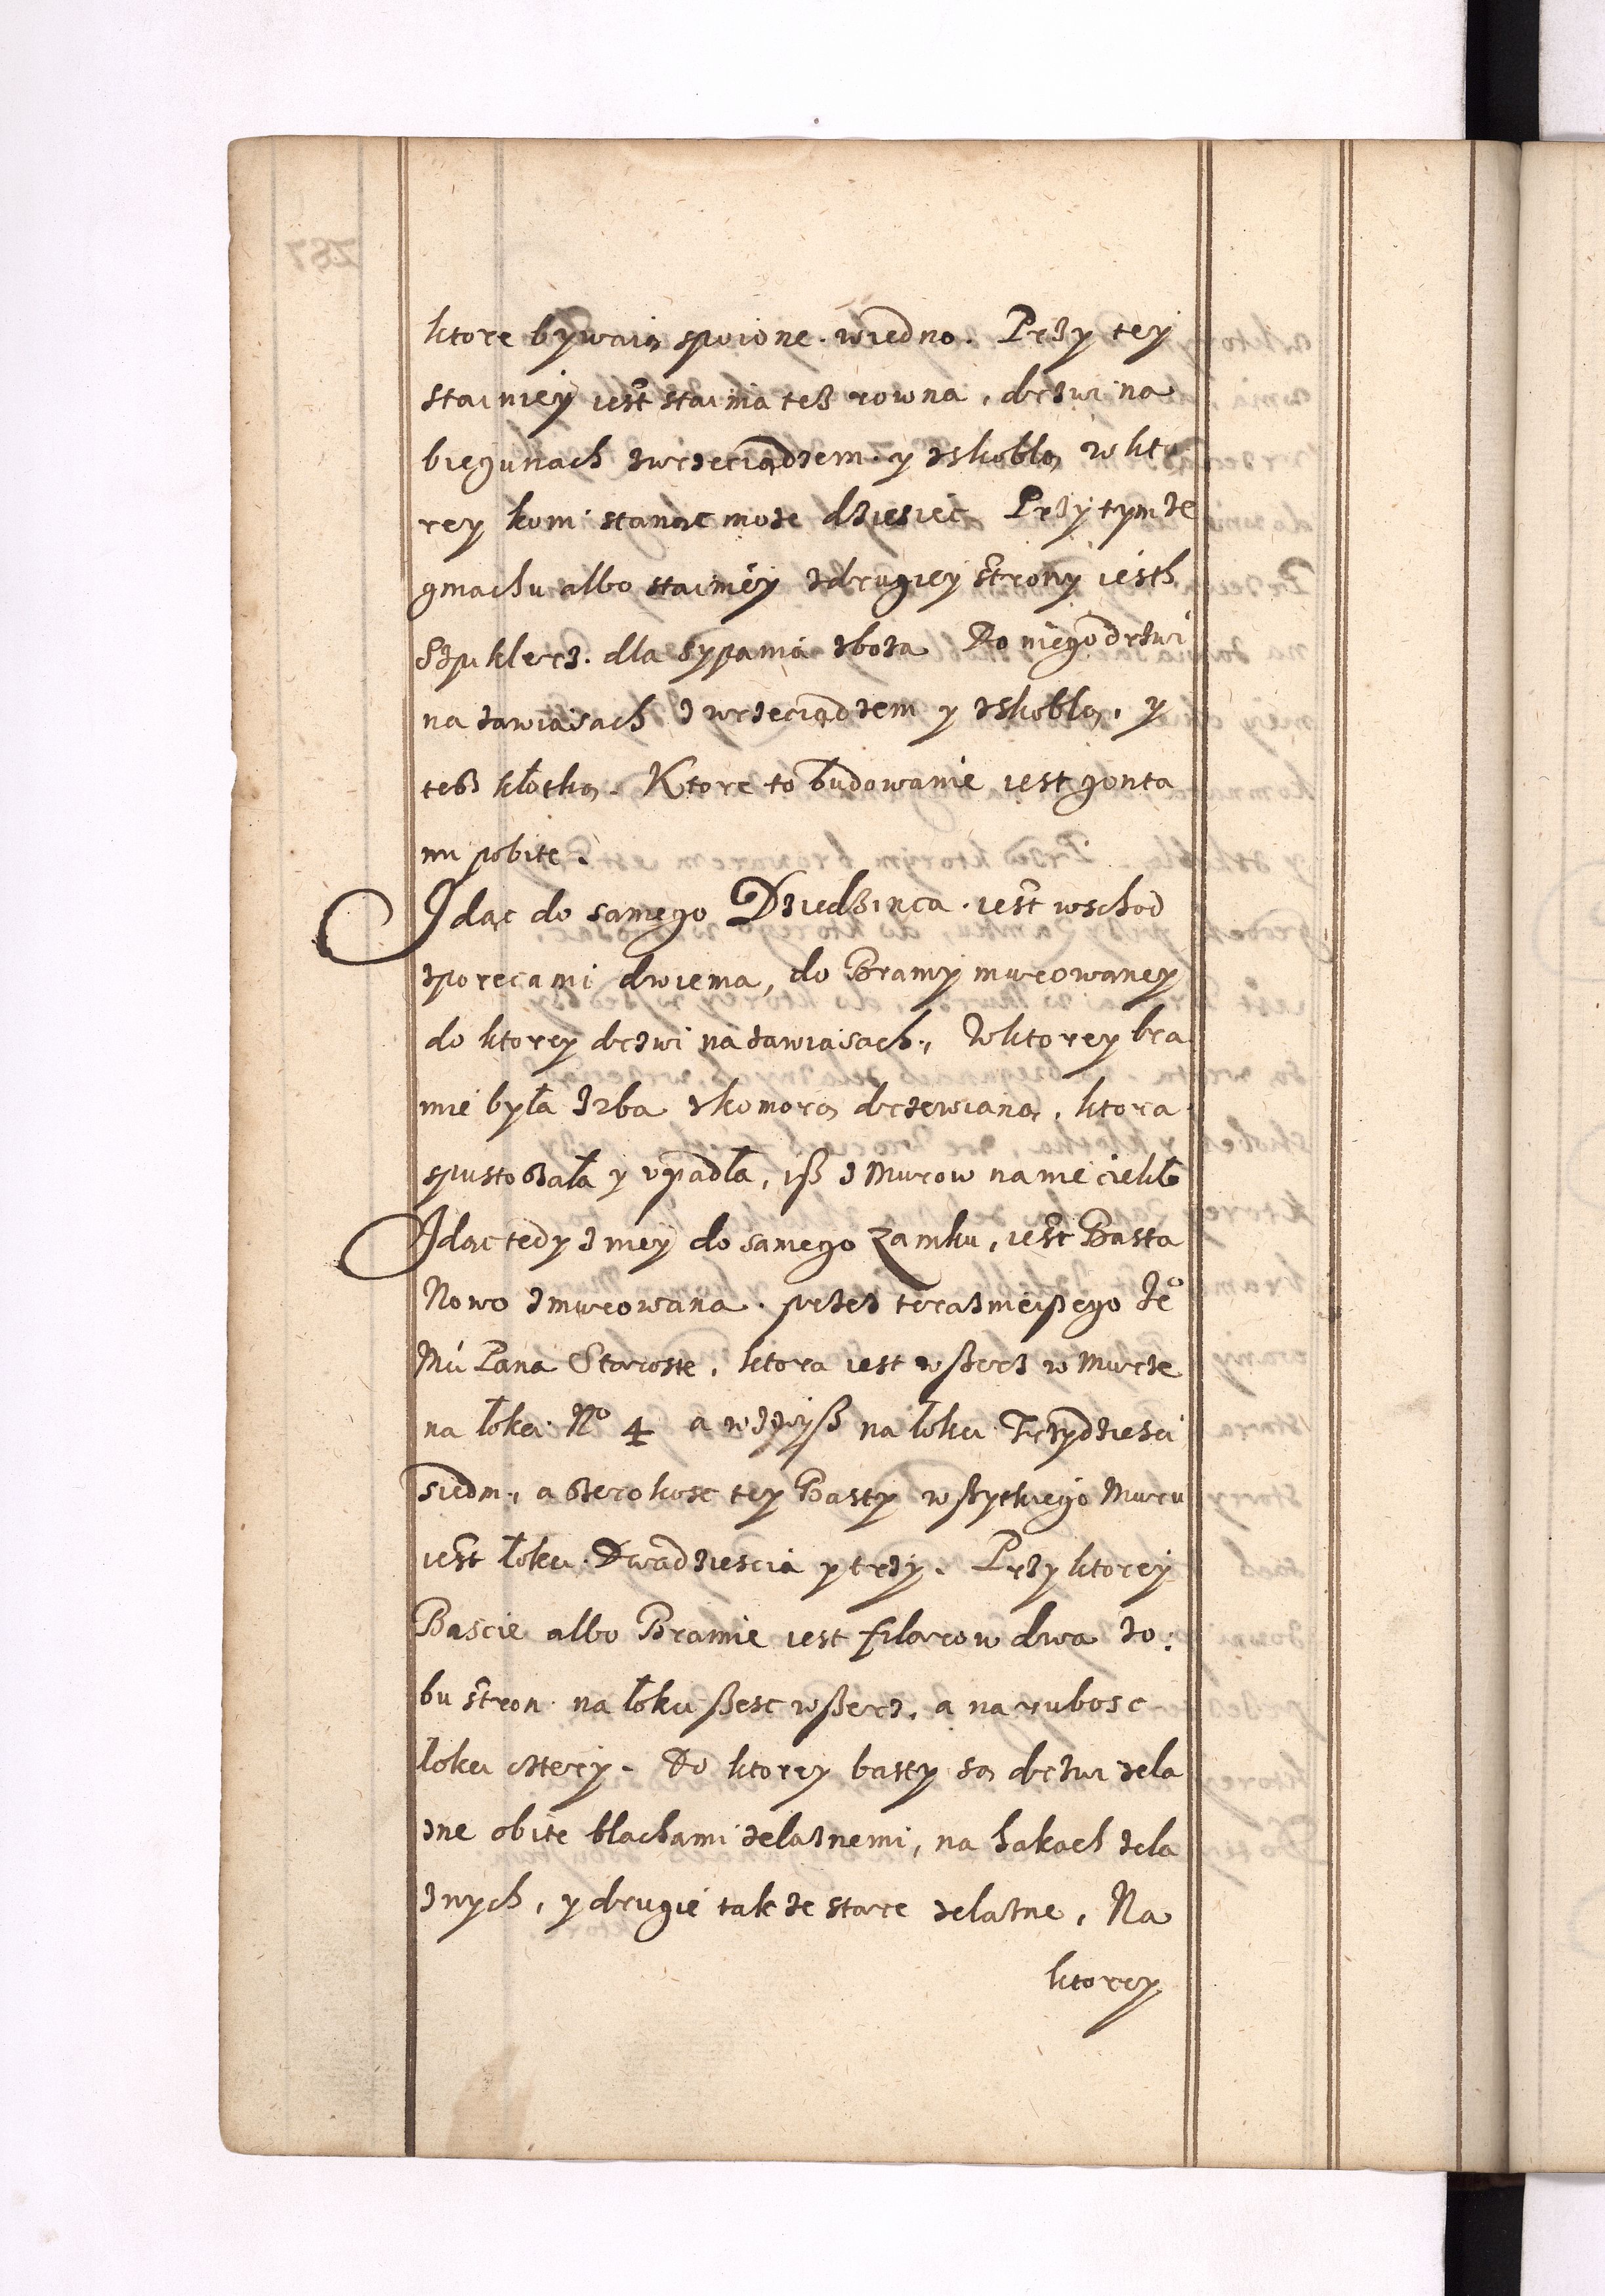 ktore bywaią spoione wiedno. Przy tey
stainiey iest stainia tesz rowna, drzwi na
biegunach zwrzeciądzem y zskoblą wkto
rey koni stanąc może dziesięc Przy tymże
gmachu albo stainiey zdrugiey strony iesth
Szpiklerz. dla sypania zboża Do niego drzwi
na zawiasach z wrzeciądzem y zskoblą, y
tesz kłotką. Ktore to budowanie iest gonta
mi pobite.
Idąc do samego Dziedzinca iest wschod
zporęcami dwiema, do Bramy murowaney
do ktorey drzwi na zawiasach, Wktorey bra
mie była Izba zkomorą drzewianą, ktora
spustoszała y upadła, isz z Murow na nie ciekło
Idąc tedy z niey do samego Zamku, iest Basta
Nowo zmurowana przez teraznieiszego Je°
Mci Pana Staroste, ktora iest wszerz w Murze
na łokci N° 4 a wzwysz na łokci Trzydziesci
siedm, a szerokosc tey Basty wszytkiego Muru
iest łokci Dwadziescia y trzy. Przy ktorey
Bascie albo Bramie iest filarow dwa zo:
bu stron na łokci szesc wszerz, a na rubosc
łokci cztery. Do ktorey basty są drzwi żela
zne obite blachami żelaznemi, na hakach żela
znych, y drugie takze stare żelazne, Na
ktorey
287